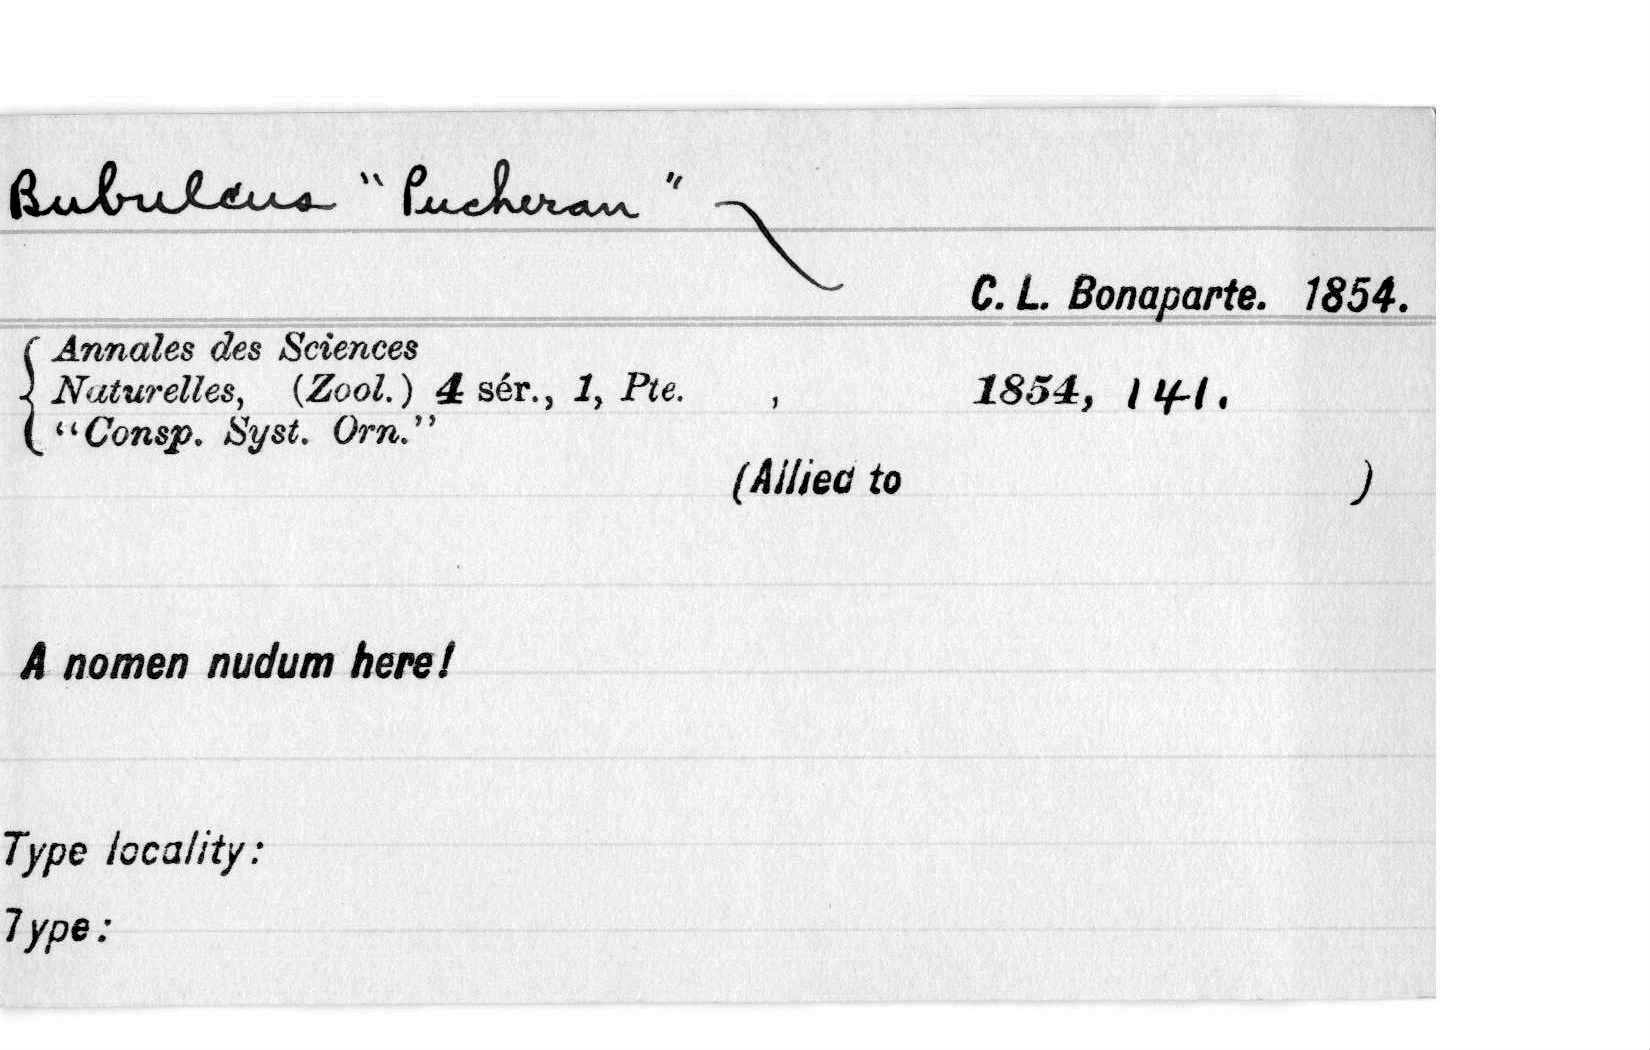 Bubulcus "Pucheran"
C. L. Bonaparte. 1854.
Annales des Sciences
Naturelles, (Zool.) 4 sér., 1, Pte. , 1854, 141.
"Consp. Syst. Orn."
(Allied to )
A nomen nudum here!
Type locality:
Type: